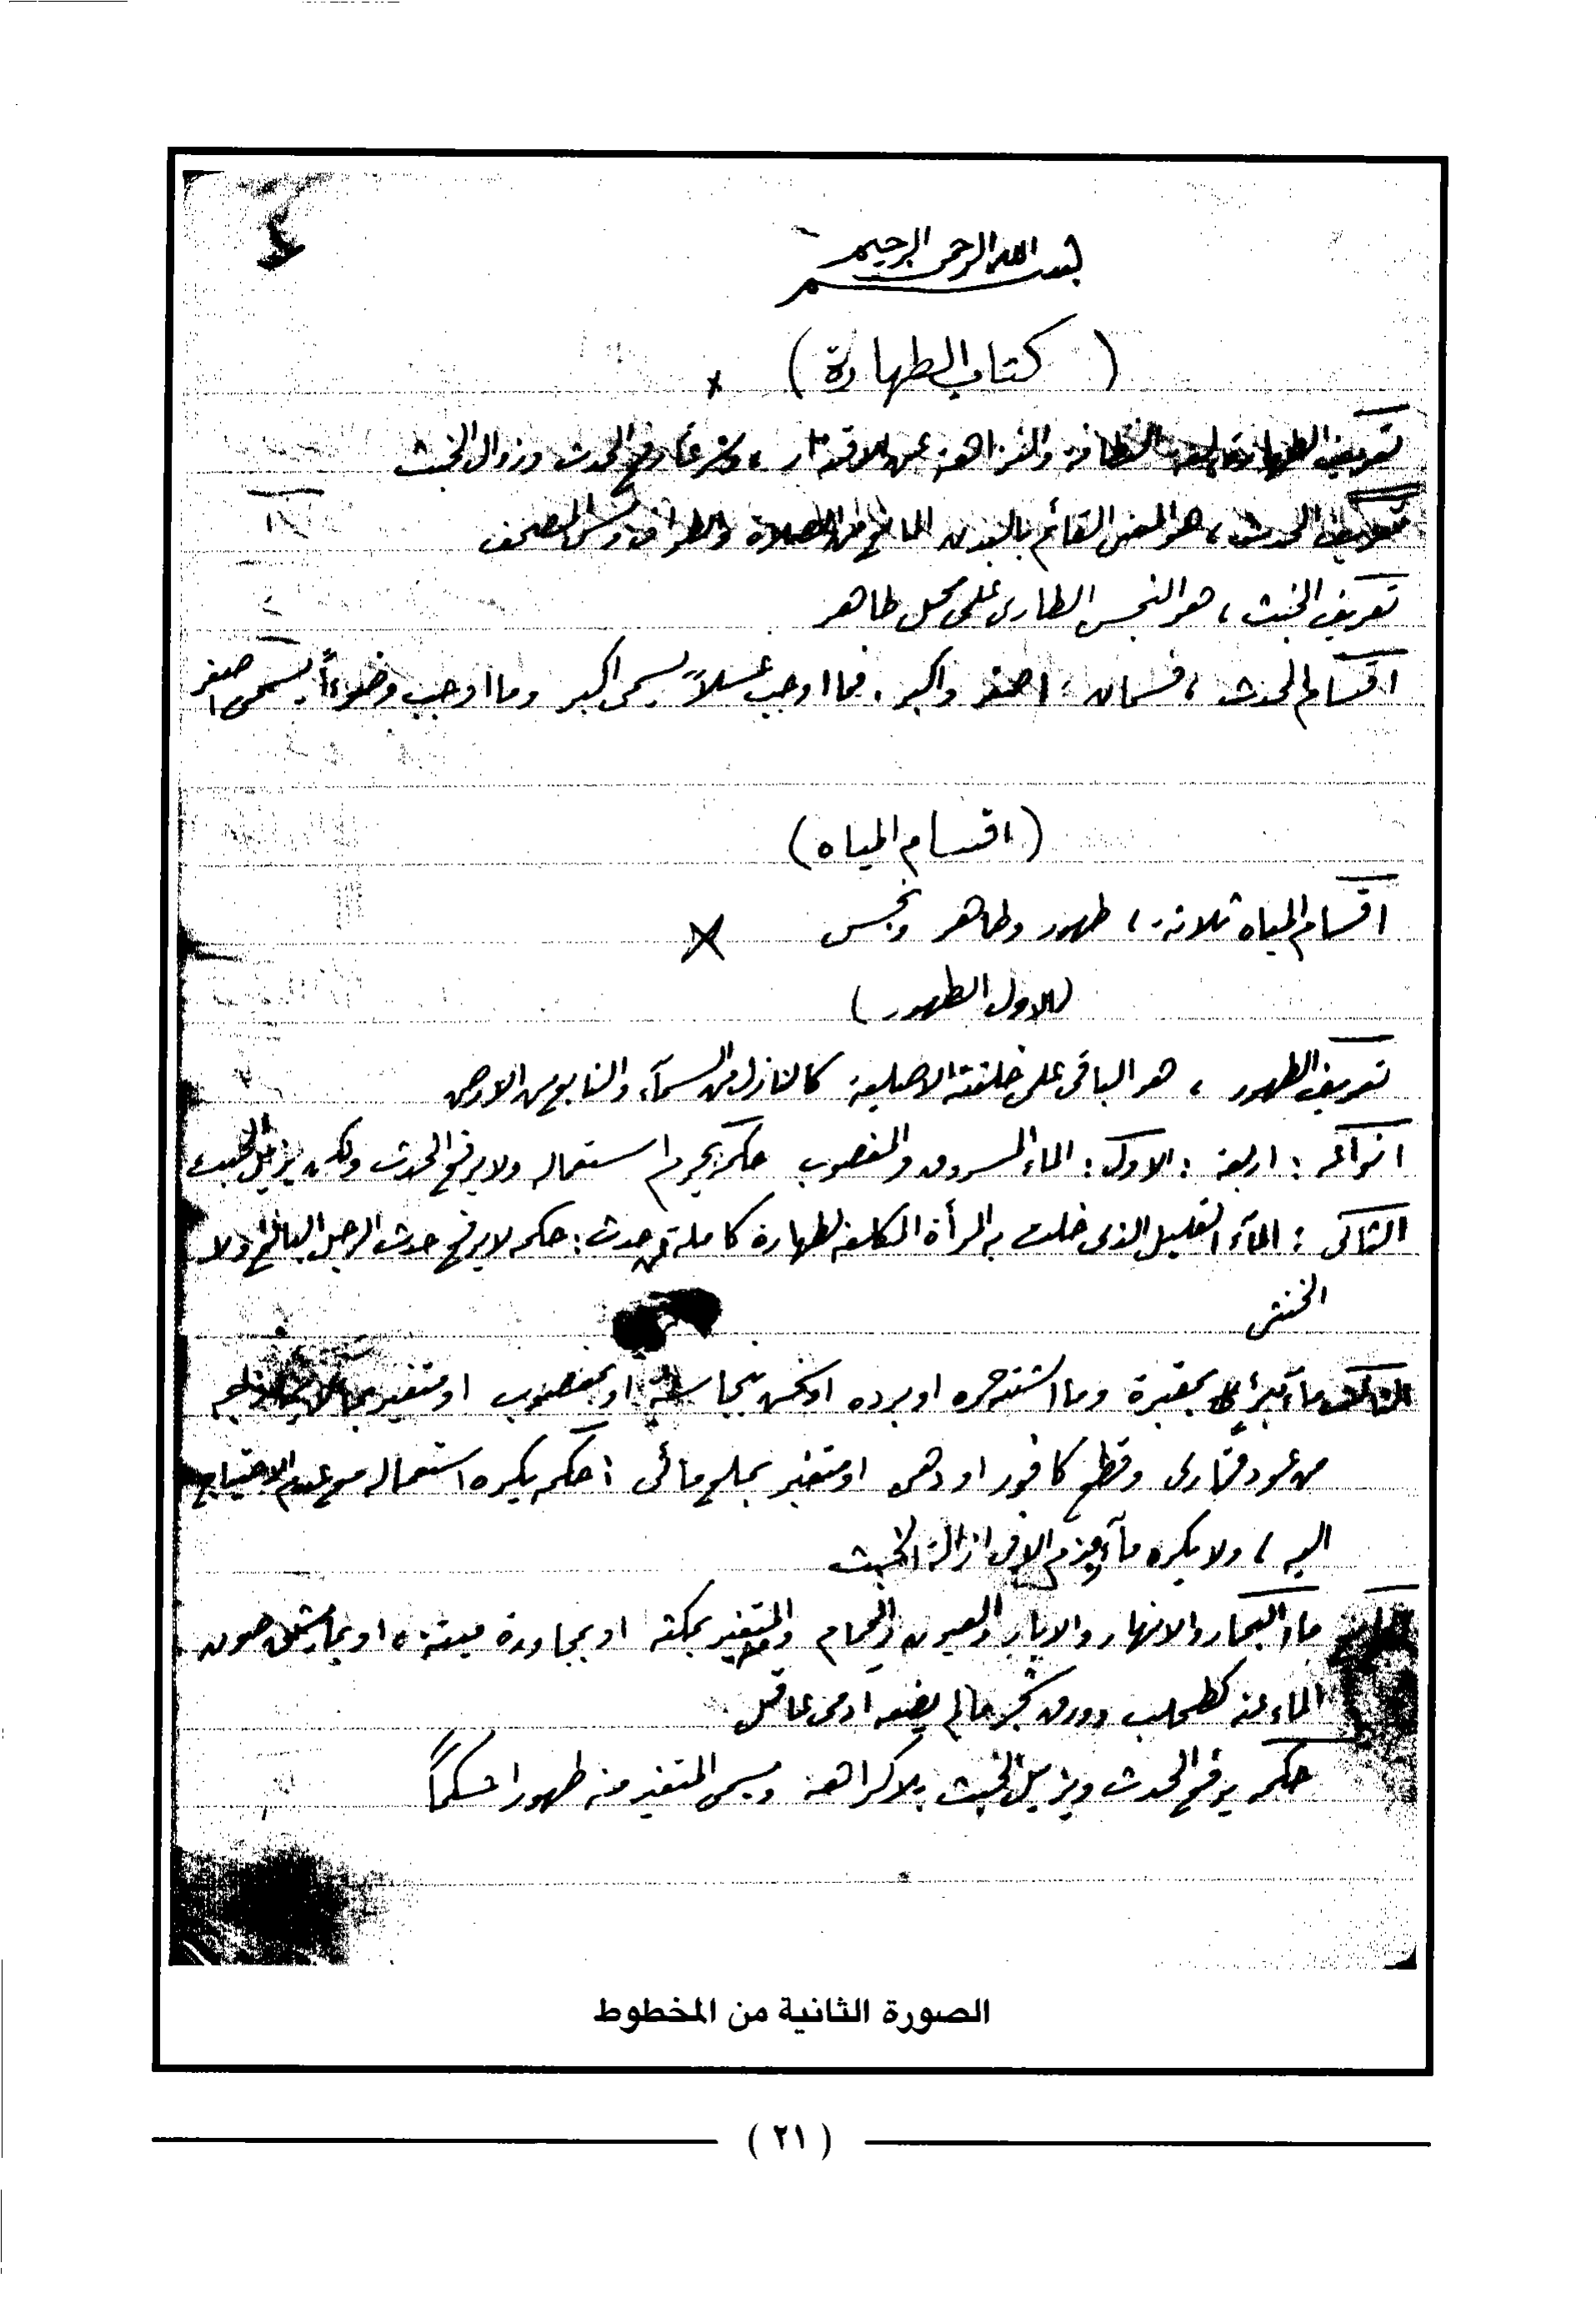 بسم الله الرحمن الرحيم
( كتاب الطهارة )
تعريف الطهارة، لغة النظافة والنزاهة عن الاقذار، وشرعا رفع الحدث وزوال الخبث
تعريف الحدث، هو المعنى القائم بالبدن المانع من الصلاة والطواف ومس المصحف
تعريف الخبث، هو النجس الطارى على محل طاهر
اقسام الحدث، قسمان: اصغر واكبر. فما اوجب غسلاً يسمى اكبر وما اوجب وضوءاً يسمى اصغر
(اقسام المياه)
اقسام المياه ثلاثة، طهور وطاهر ونجس
(الاول الطهور)
تعريف الطهور، هو الباقى على خلقته الاصلية كالنازل من السمآء والنابع من الارض
انواعه: اربعة: الاول: الماء المسروق والمغصوب حكمه يحرم استعماله ولا يرفع الحدث ولكن يزيل الخبث
الثانى: المآء القليل الذى خلت به المرأة المكلفة لطهارة كاملة عن حدث: حكمه لا يرفع حدث الرجل البالغ ولا
الخنثى
الثالث مآء بئر بمقبرة وما اشتد حره او برده او سخن بنجاسة او بمغصوب او متغير بما لا يمازجه
من عود قمارى وقطع كافور او دهن او متغير بملح مائى: حكمه يكره استعماله مع عدم الاحتياج
اليه، ولا يكره مآء زمزم الا فى ازالة الخبث
الرابع مآء البحار والانهار والابار والعيون والحمام والمتغير بمكثه او بمجاورة ميتة، او بما يشق صون
الماء عنه كطحلب وورق شجر مالم يضعه ادمى عاقل
حكمه يرفع الحدث ويزيل الخبث بلا كراهة ويسمى المتغير منه طهورا حكماً
الصورة الثانية من المخطوط
( ٢١ )